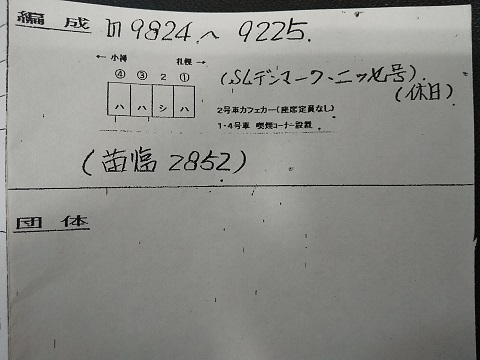 編成 m9824～9225.
← 小樽 札幌 →
④ ③ 2 ①
ハ ハ シ ハ
(SLデンマーク・ニッセ号)
(休日)
2号車カフェカー(座席定員なし)
1・4号車 喫煙コーナー設置
(苗臨 2852)
団体